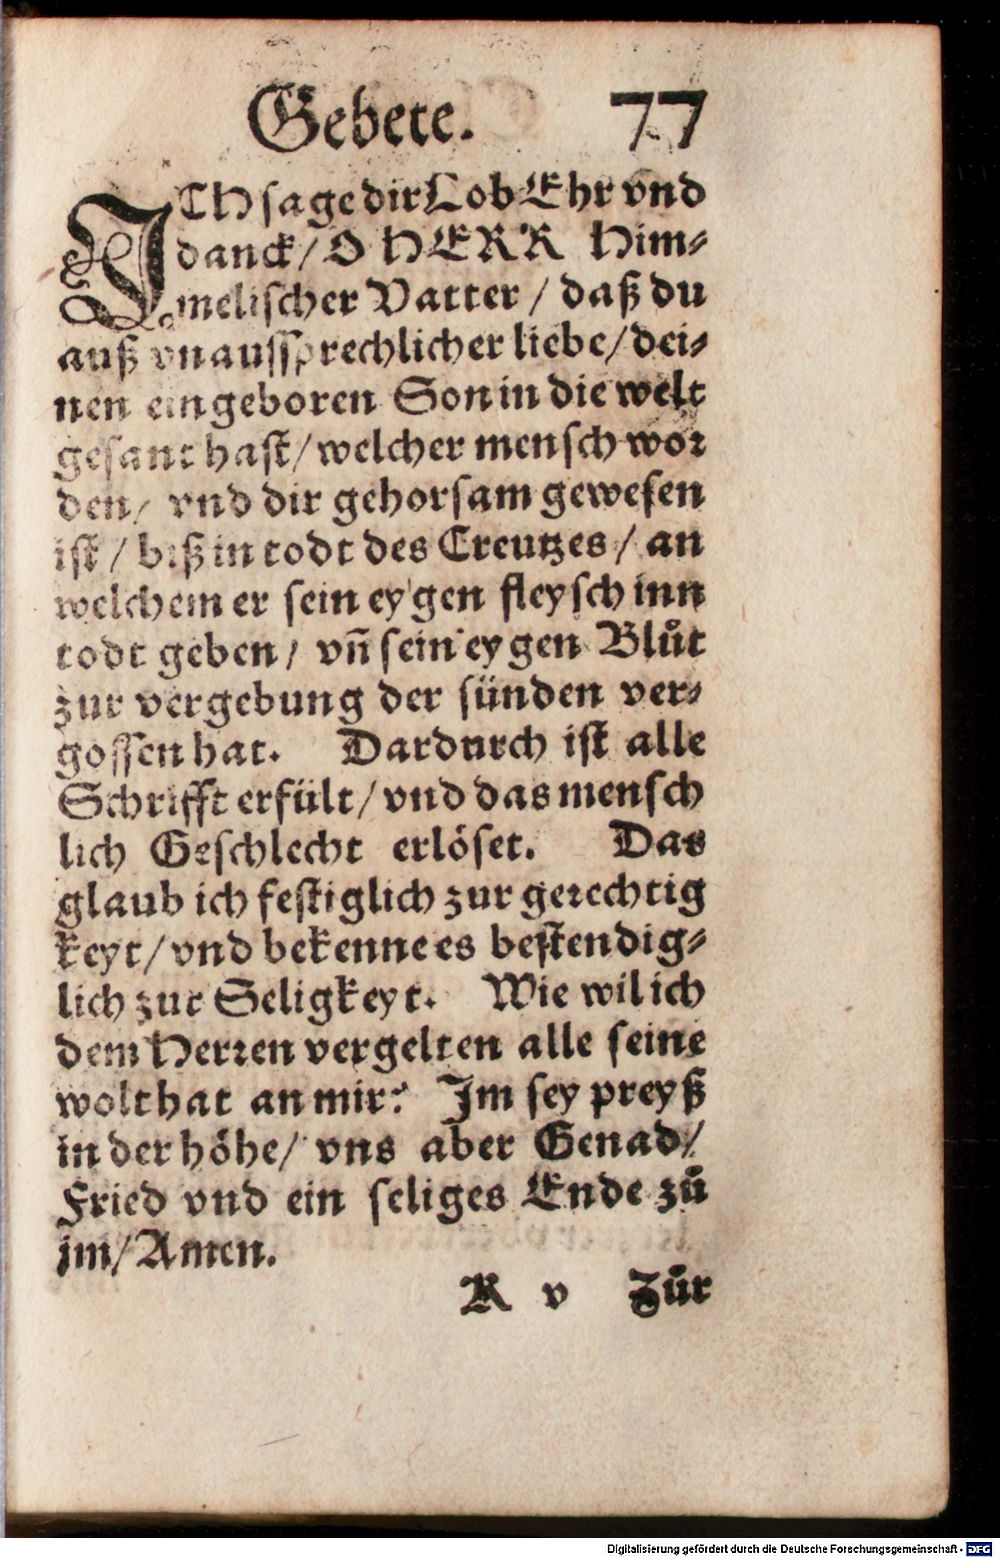 Gebete. 77
ICH sage dir Lob Ehr vnd
danck/ O HERR Him⸗
melischer Vatter / daß du
auß vnaussprechlicher liebe/ dei⸗
nen eingeboren Son in die welt
gesant hast/ welcher mensch wor
den/ vnd dir gehorsam gewesen
ist / biß in todt des Creutzes / an
welchem er sein eygen fleysch inn
todt geben / vñ sein eygen Blůt
zur vergebung der sünden ver⸗
gossen hat. Dardurch ist alle
Schrifft erfült/ vnd das mensch
lich Geschlecht erlöset. Das
glaub ich festiglich zur gerechtig
keyt/ vnd bekenne es bestendig⸗
lich zur Seligkeyt. Wie wil ich
dem Herren vergelten alle seine
wolthat an mir? Im sey preyß
in der höhe/ vns aber Genad/
Fried vnd ein seliges Ende zů
jm/ Amen.
K v Zůr
Digitalisierung gefördert durch die Deutsche Forschungsgemeinschaft - DFG